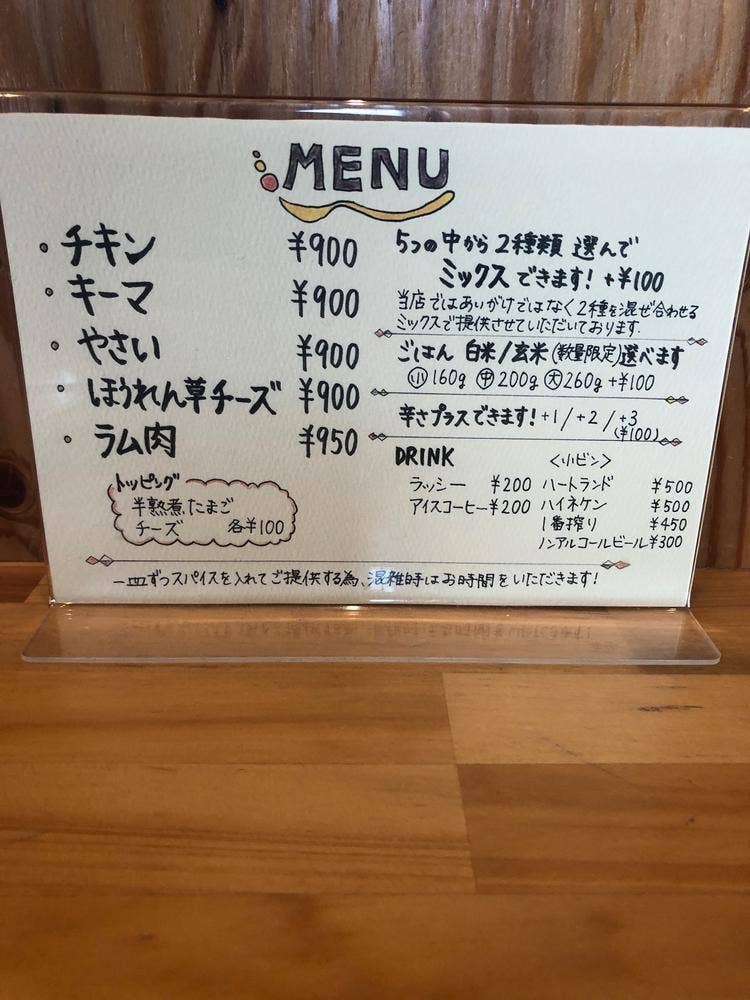 MENU
・チキン ¥900
・キーマ ¥900
・やさい ¥900
・ほうれん草チーズ ¥900
・ラム肉 ¥950
トッピング
半熟煮たまご
チーズ 各¥100
5つの中から2種類 選んで
ミックスできます! +¥100
当店ではあいがけではなく2種を混ぜ合わせる
ミックスで提供させていただいております.
ごはん 白米/玄米(数量限定)選べます
㊙160g ㊥200g 大260g +¥100
辛さプラスできます!+1/+2/+3
(¥100)
DRINK
ラッシー ¥200
アイスコーヒー¥200
<小ビン>
ハートランド ¥500
ハイネケン ¥500
1番搾り ¥450
ノンアルコールビール¥300
一皿ずつスパイスを入れてご提供する為、混雑時はお時間をいただきます!